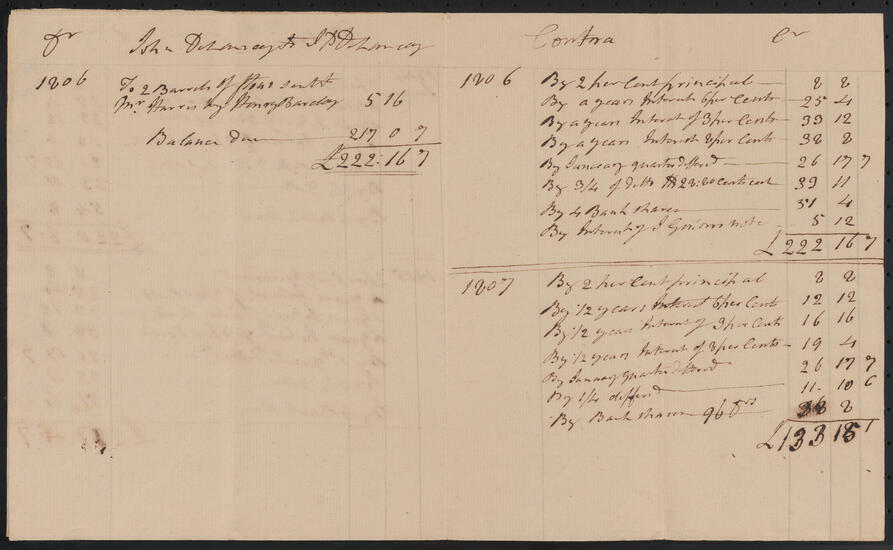 Dr John DeLancey to J P DeLancey
1806 To 2 Barrels of flour sent
Mr. Harris by Henry Barclay 5 16
Balance due 217 0 7
£222:16 7
Contra Cr
1806 By 2 per Cent principal 8 8
By a years Interest 6 per Cents 25 4
By a years Interest of 3 per Cents 33 12
By a years Interest 8 per Cents 38 8
By January quarter deffered 26 17 7
By 3/4 of ditto 33 11
By 4 Bank shares 51 4
By Interest of J note 5 12
£222 16 7
1807 By 2 per Cent principal 8 8
By 1/2 years Interest 6 per Cents 12 12
By 1/2 years Interest of 3 per Cents 16 16
By 1/2 years Interest of 8 per Cents 19 4
By January quarter deffered 26 17 7
By 1/4 deffered 11. 10 6
By Bank shares 96 Drs 38 8
£133 15 1